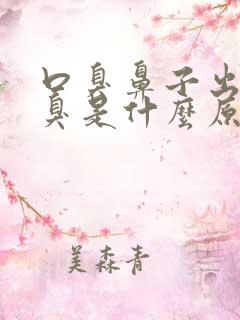 口臭鼻子出
臭是什麼原
美森青